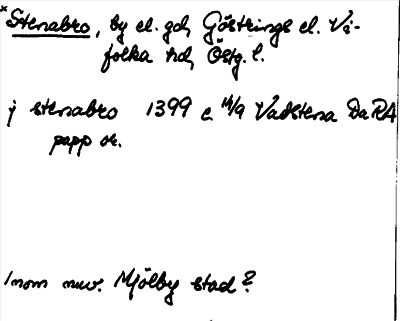 *Stenabro, by el. gd, Göstrings el. Vi-
folka hd, Östg. l.
j stenabro 1399 c 14/9 Vadstena DaRA
papp or.
Inom nuv. Mjölby stad?